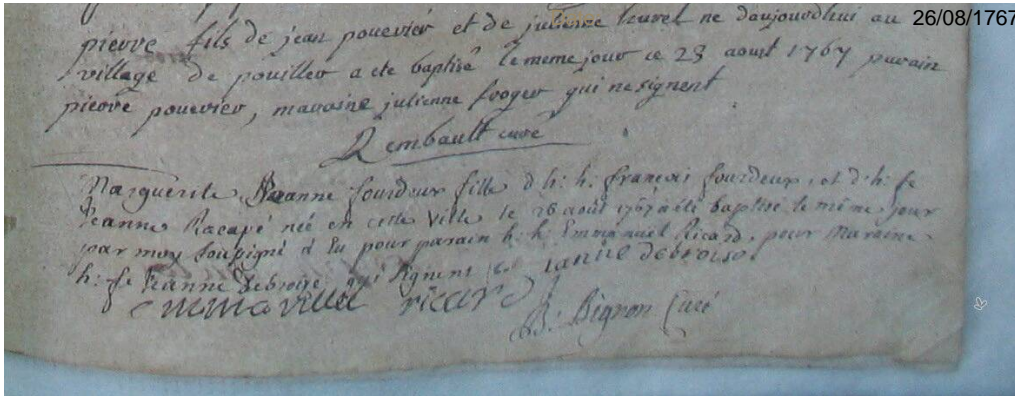 26/08/1767
pierre fils de jean pouevier et de julienne ne daujourdhui au
village de pouiller a ete baptisé le meme jour ce 28 aoust 1767 parain
pierre pouevier, maraine julienne froger qui ne signent
Rembault curé
Marguerite Jeanne fourdeux fille d h: h: françois fourdeux, et d'h: fe
Jeanne Racapé née en cette Ville le 26 août 1767 a été baptisé le même jour
par moy soupigné a Eu pour parain h: h: Emmanuel Ricard, pour Maraine
h: fe Jeanne Debroise qui signent janne debroise
emmanuel ricard
Bignon Curé